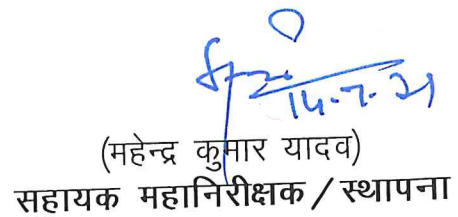 14.7.21
(महेन्द्र कुमार यादव)
सहायक महानिरीक्षक / स्थापना